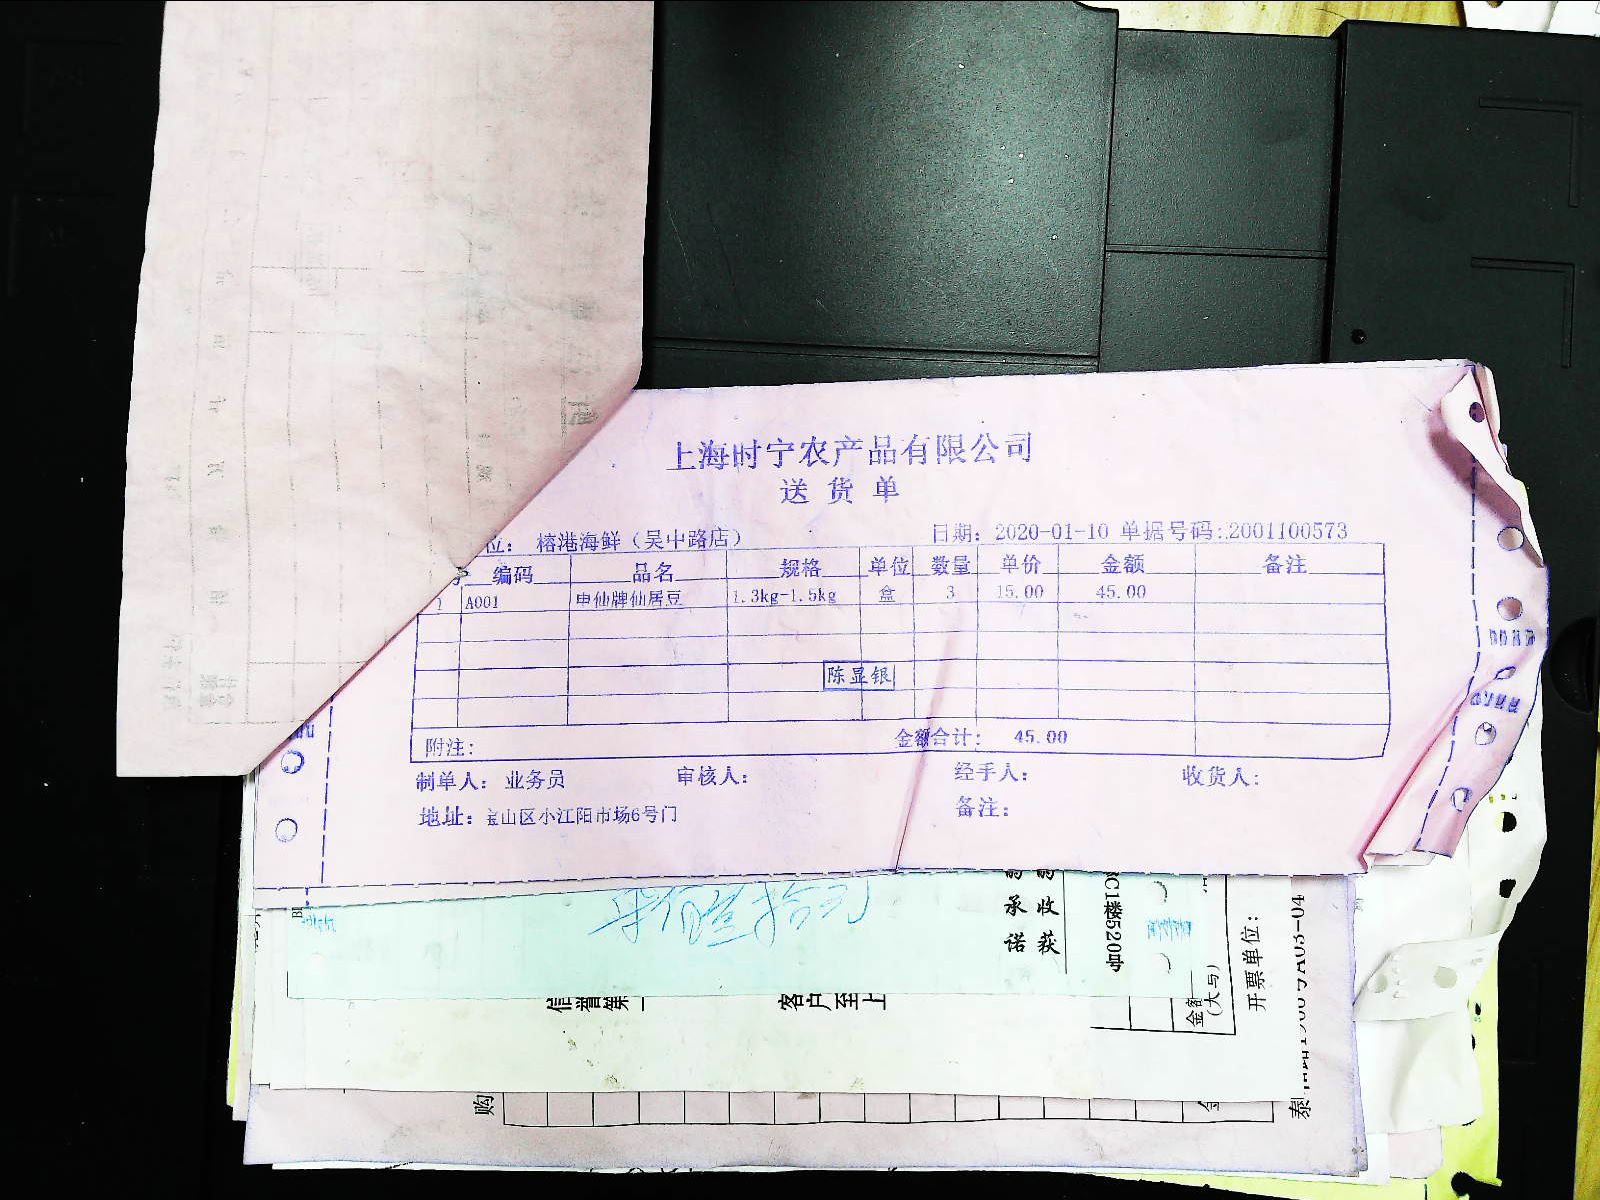 上海时宁农产品有限公司
送货单
位： 榕港海鲜（吴中路店） 日期：2020-01-10 单据号码：2001100573
编码 品名 规格 单位 数量 单价 金额 备注
1 A001 申仙牌仙居豆 1.3kg-1.5kg 盒 3 15.00 45.00
陈显银
附注： 金额合计： 45.00
制单人：业务员 审核人： 经手人： 收货人：
地址：宝山区小江阳市场6号门 备注：
承诺
收获
C1楼520号
金额
(大写)
开票单位：
客户至上
购
泰